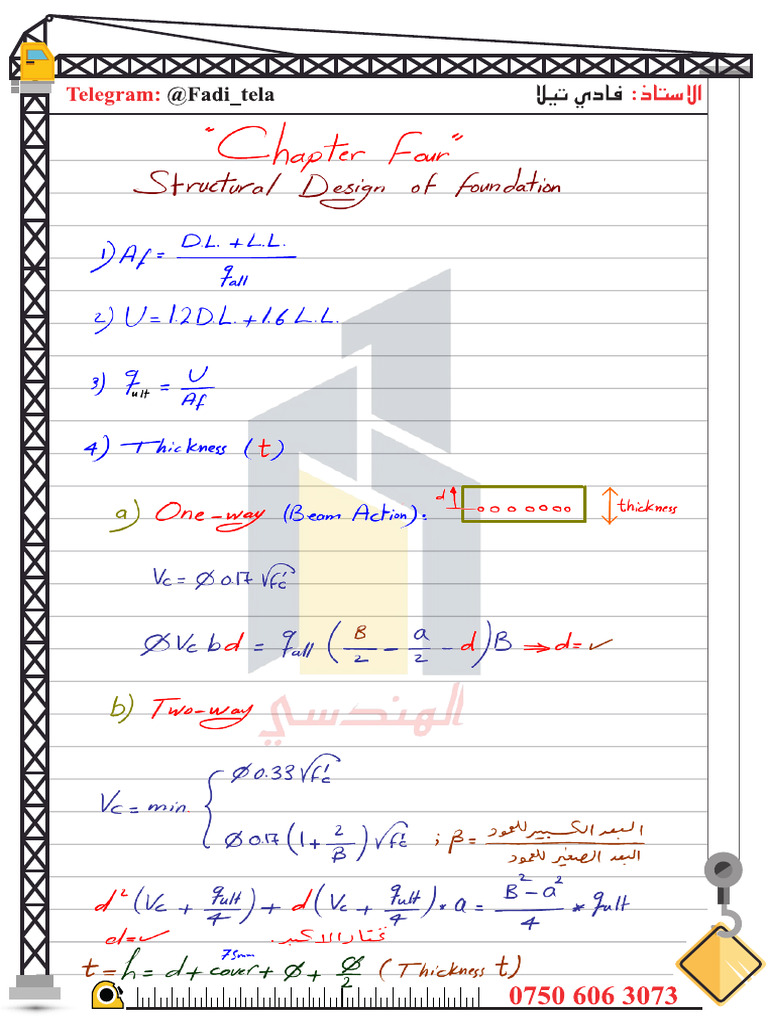 Telegram: @Fadi_tela
الاستاذ: فادي تيلا
"Chapter Four"
Structural Design of foundation
1) Af = D.L. + L.L. / qall
2) U = 1.2 D.L. + 1.6 L.L.
3) qult = U / Af
4) Thickness (t)
a) One-way (Beam Action):
d
thickness
Vc = Ø 0.17 √fc'
ØVc b d = qall (B/2 - a/2 - d) B ⇒ d = ✓
b) Two-way
الهندسي
Vc = min. { Ø 0.33 √fc'
Ø 0.17 (1 + 2/β) √fc' ; β = البعد الكبير للعمود / البعد الصغير للعمود
d² (Vc + qult/4) + d (Vc + qult/4) * a = B² - a² / 4 * qult
d = ✓ نختار الاكبر
75mm
t = h = d + cover + Ø + Ø/2 (Thickness t)
0750 606 3073